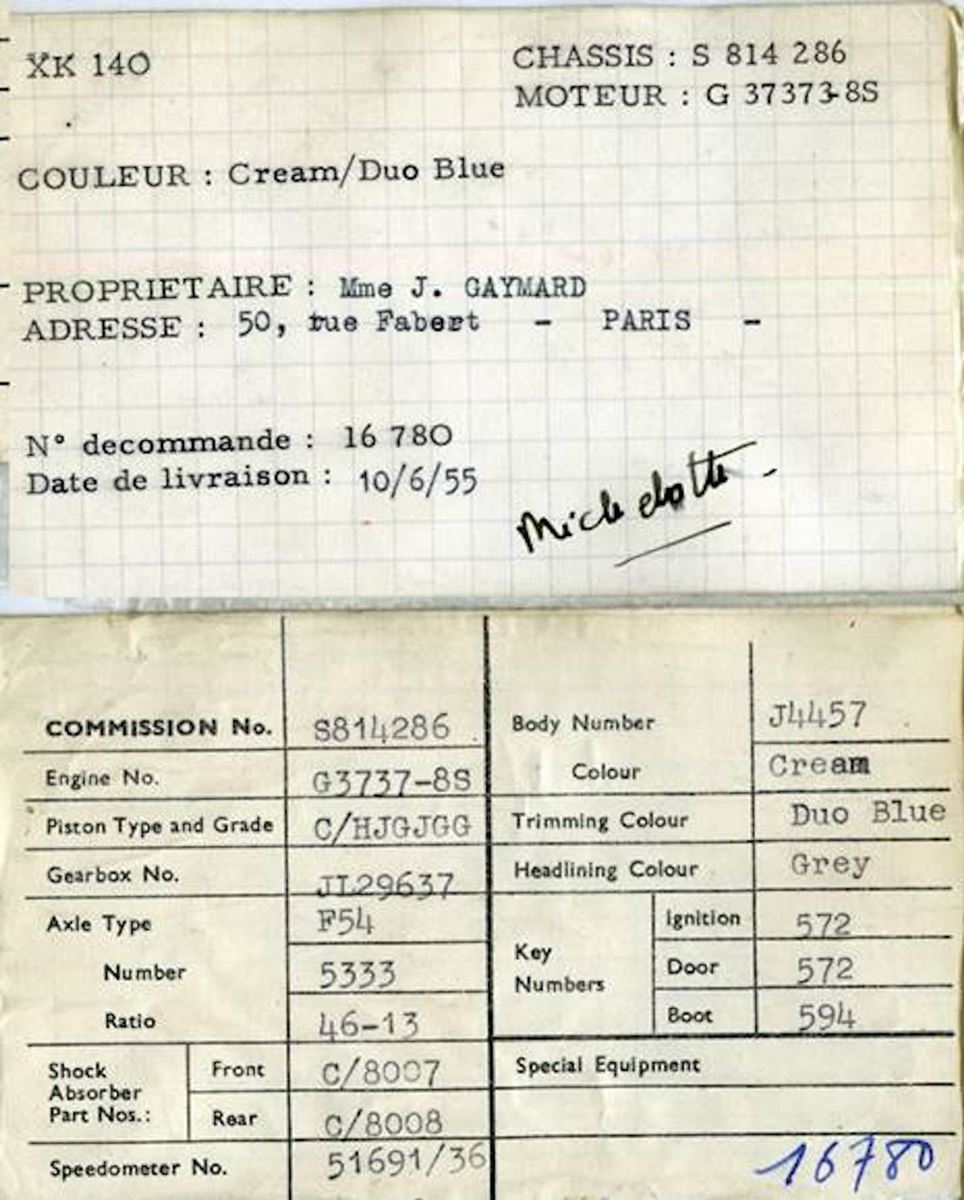 XK 140
CHASSIS : S 814 286
MOTEUR : G 37373-8S
COULEUR : Cream/Duo Blue
PROPRIETAIRE : Mme J. GAYMARD
ADRESSE : 50, rue Fabert - PARIS -
N° decommande : 16 780
Date de livraison : 10/6/55
Michelotti
COMMISSION No. S814286
Engine No. G3737-8S
Piston Type and Grade C/HJGJGG
Gearbox No. JL29637
Axle Type F54
Number 5333
Ratio 46-13
Shock Absorber Part Nos.: Front C/8007
Rear C/8008
Speedometer No. 51691/36
Body Number J4457
Colour Cream
Trimming Colour Duo Blue
Headlining Colour Grey
Key Numbers Ignition 572
Door 572
Boot 594
Special Equipment
16780